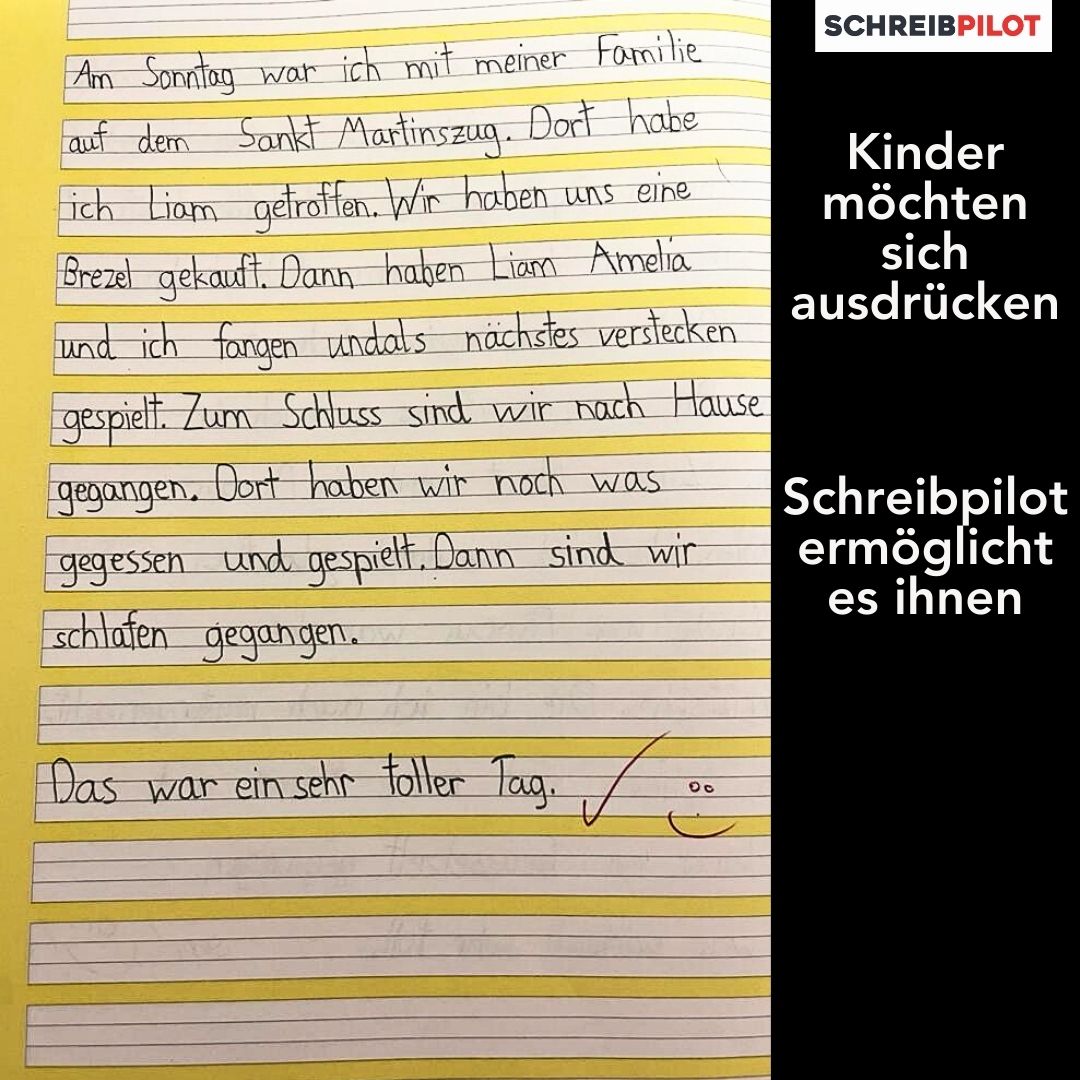 Am Sonntag war ich mit meiner Familie
auf dem Sankt Martinszug. Dort habe
ich Liam getroffen. Wir haben uns eine
Brezel gekauft. Dann haben Liam Amelia
und ich fangen undals nächstes verstecken
gespielt. Zum Schluss sind wir nach Hause
gegangen. Dort haben wir noch was
gegessen und gespielt. Dann sind wir
schlafen gegangen.
Das war ein sehr toller Tag.
SCHREIBPILOT
Kinder
möchten
sich
ausdrücken
Schreibpilot
ermöglicht
es ihnen